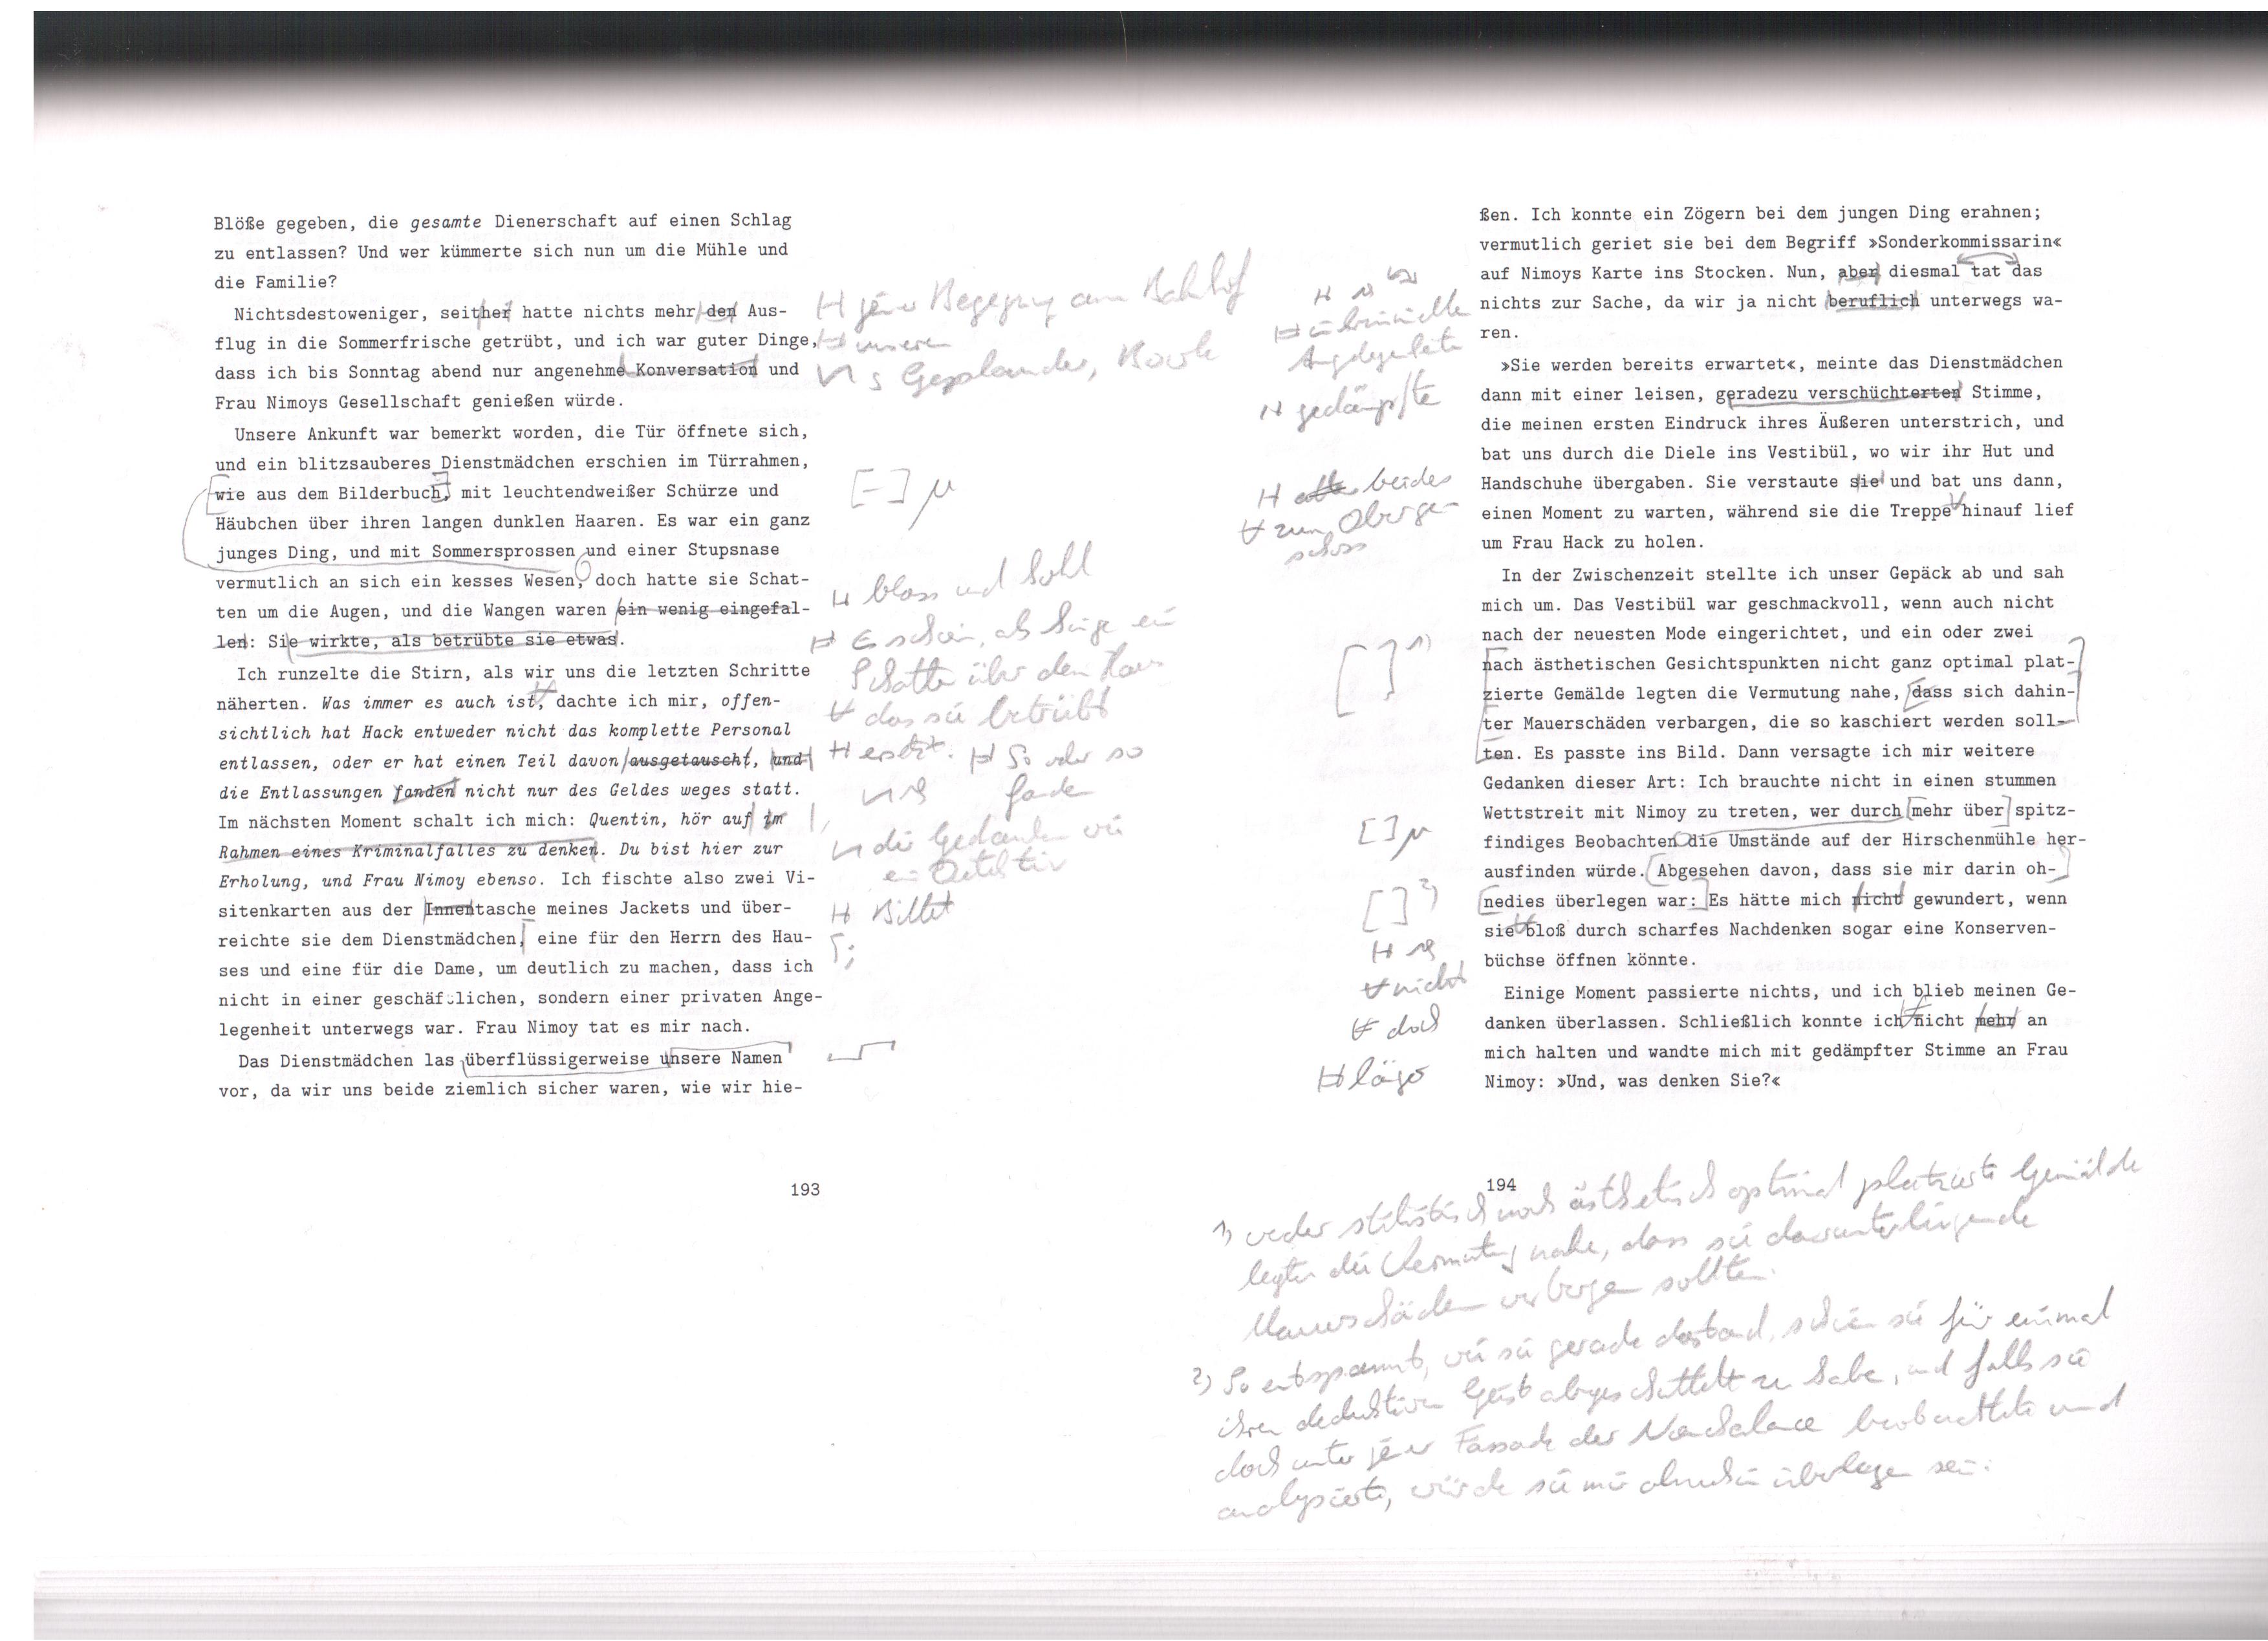 Blöße gegeben, die gesamte Dienerschaft auf einen Schlag
zu entlassen? Und wer kümmerte sich nun um die Mühle und
die Familie?
Nichtsdestoweniger, seither hatte nichts mehr den Aus-
flug in die Sommerfrische getrübt, und ich war guter Dinge,
dass ich bis Sonntag abend nur angenehme Konversation und
Frau Nimoys Gesellschaft genießen würde.
Unsere Ankunft war bemerkt worden, die Tür öffnete sich,
und ein blitzsauberes Dienstmädchen erschien im Türrahmen,
wie aus dem Bilderbuch, mit leuchtendweißer Schürze und
Häubchen über ihren langen dunklen Haaren. Es war ein ganz
junges Ding, und mit Sommersprossen und einer Stupsnase
vermutlich an sich ein kesses Wesen, doch hatte sie Schat-
ten um die Augen, und die Wangen waren ein wenig eingefal-
len: Sie wirkte, als betrübte sie etwas.
Ich runzelte die Stirn, als wir uns die letzten Schritte
näherten. Was immer es auch ist, dachte ich mir, offen-
sichtlich hat Hack entweder nicht das komplette Personal
entlassen, oder er hat einen Teil davon ausgetauscht, und
die Entlassungen fanden nicht nur des Geldes weges statt.
Im nächsten Moment schalt ich mich: Quentin, hör auf im
Rahmen eines Kriminalfalles zu denken. Du bist hier zur
Erholung, und Frau Nimoy ebenso. Ich fischte also zwei Vi-
sitenkarten aus der Innentasche meines Jackets und über-
reichte sie dem Dienstmädchen, eine für den Herrn des Hau-
ses und eine für die Dame, um deutlich zu machen, dass ich
nicht in einer geschäftlichen, sondern einer privaten Ange-
legenheit unterwegs war. Frau Nimoy tat es mir nach.
Das Dienstmädchen las überflüssigerweise unsere Namen
vor, da wir uns beide ziemlich sicher waren, wie wir hie-
193
jener Begegnung am Bahnhof
unseren
Geplauder, Boote
[-]
blass und hohl
Es schien, als hinge ein
Schatten über dem Haus
das sie betrübt
ersetzt. So oder so
fanden
die Gedanken wie
ein Detektiv
Billet
;
ßen. Ich konnte ein Zögern bei dem jungen Ding erahnen;
vermutlich geriet sie bei dem Begriff »Sonderkommissarin«
auf Nimoys Karte ins Stocken. Nun, aber diesmal tat das
nichts zur Sache, da wir ja nicht beruflich unterwegs wa-
ren.
»Sie werden bereits erwartet«, meinte das Dienstmädchen
dann mit einer leisen, geradezu verschüchterten Stimme,
die meinen ersten Eindruck ihres Äußeren unterstrich, und
bat uns durch die Diele ins Vestibül, wo wir ihr Hut und
Handschuhe übergaben. Sie verstaute sie und bat uns dann,
einen Moment zu warten, während sie die Treppe hinauf lief
um Frau Hack zu holen.
In der Zwischenzeit stellte ich unser Gepäck ab und sah
mich um. Das Vestibül war geschmackvoll, wenn auch nicht
nach der neuesten Mode eingerichtet, und ein oder zwei
nach ästhetischen Gesichtspunkten nicht ganz optimal plat-
zierte Gemälde legten die Vermutung nahe, dass sich dahin-
ter Mauerschäden verbargen, die so kaschiert werden soll-
ten. Es passte ins Bild. Dann versagte ich mir weitere
Gedanken dieser Art: Ich brauchte nicht in einen stummen
Wettstreit mit Nimoy zu treten, wer durch mehr über spitz-
findiges Beobachten die Umstände auf der Hirschenmühle her-
ausfinden würde. Abgesehen davon, dass sie mir darin oh-
nedies überlegen war: Es hätte mich nicht gewundert, wenn
sie bloß durch scharfes Nachdenken sogar eine Konserven-
büchse öffnen könnte.
Einige Moment passierte nichts, und ich blieb meinen Ge-
danken überlassen. Schließlich konnte ich nicht mehr an
mich halten und wandte mich mit gedämpfter Stimme an Frau
Nimoy: »Und, was denken Sie?«
194
in kriminellen
Angelegenheiten
gedämpften
alles beides
zum Oberge-
schoss
[ ] 1)
[ ]
[ ] 2)
nicht
doch
länger
1) weder stilistisch noch ästhetisch optimal platzierte Gemälde
legten die Vermutung nahe, dass sie darunterliegende
Mauerschäden verbergen sollten.
2) So entspannt, wie sie gerade dastand, schien sie für einmal
ihren deduktiven Geist abgeschüttelt zu haben, und falls sie
doch unter jener Fassade der Nonchalance beobachtete und
analysierte, würde sie mir ohnehin überlegen sein: